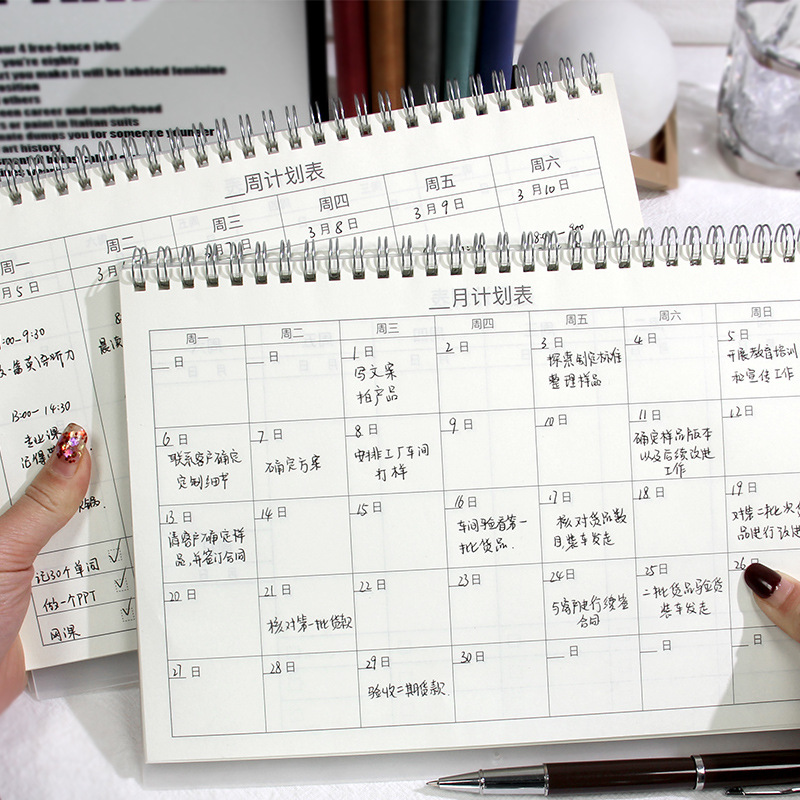 your 4 free-lance jobs
you're eighty
you make it will be labeled feminine
others
own career and motherhood
or own in Italian suits
dumps you for someone younger
art history
__周计划表
周一
周二
周三
周四
周五
周六
月5日
3月8日
3月9日
3月10日
00-9:30
听力
13:00-14:30
专业课
记30个单词
做一个PPT
网课
__月计划表
周一
周二
周三
周四
周五
周六
周日
日
日
1日
写文案
拍产品
2日
3日
探索制定标准
整理样品
4日
5日
开展教育培训
和宣传工作
6日
联系客户确定
定制细节
7日
确定方案
8日
安排工厂车间
打样
9日
10日
11日
确定样品版本
以及后续改进
工作
12日
13日
请客户确定样
品,并签订合同
14日
15日
16日
车间验看第一
批货品.
17日
核对货品数
目装车发走
18日
19日
对第二批次货
品进行改进
20日
21日
核对第一批货款
22日
23日
24日
与客户进行续签
合同
25日
二批货品验货
装车发走
26
27日
28日
29日
验收二期货款.
30日
日
日
日